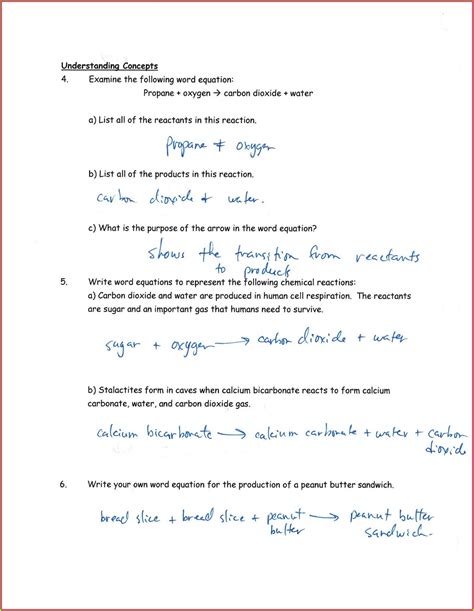 Understanding Concepts
4. Examine the following word equation:
Propane + oxygen → carbon dioxide + water
a) List all of the reactants in this reaction.
Propane & oxygen
b) List all of the products in this reaction.
carbon dioxide & water.
c) What is the purpose of the arrow in the word equation?
shows the transition from reactants
to products
5. Write word equations to represent the following chemical reactions:
a) Carbon dioxide and water are produced in human cell respiration. The reactants
are sugar and an important gas that humans need to survive.
sugar + oxygen → carbon dioxide + water
b) Stalactites form in caves when calcium bicarbonate reacts to form calcium
carbonate, water, and carbon dioxide gas.
calcium bicarbonate → calcium carbonate + water + carbon
dioxide
6. Write your own word equation for the production of a peanut butter sandwich.
bread slice + bread slice + peanut → peanut butter
butter sandwich.